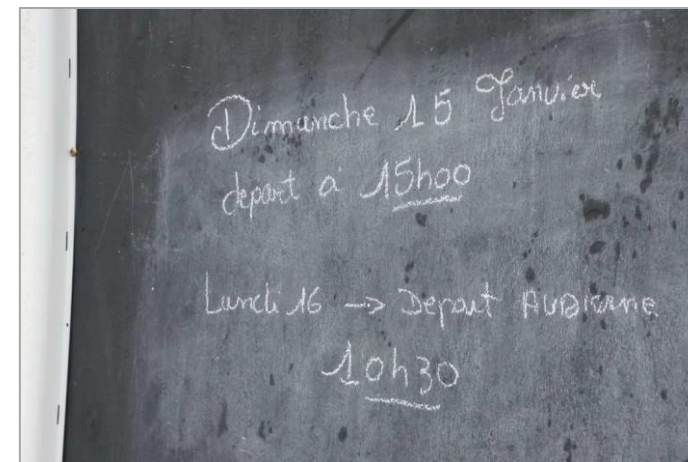 Dimanche 15 Janvier
depart a 15h00
Lundi 16 -> Depart AUDIERNE
10h30